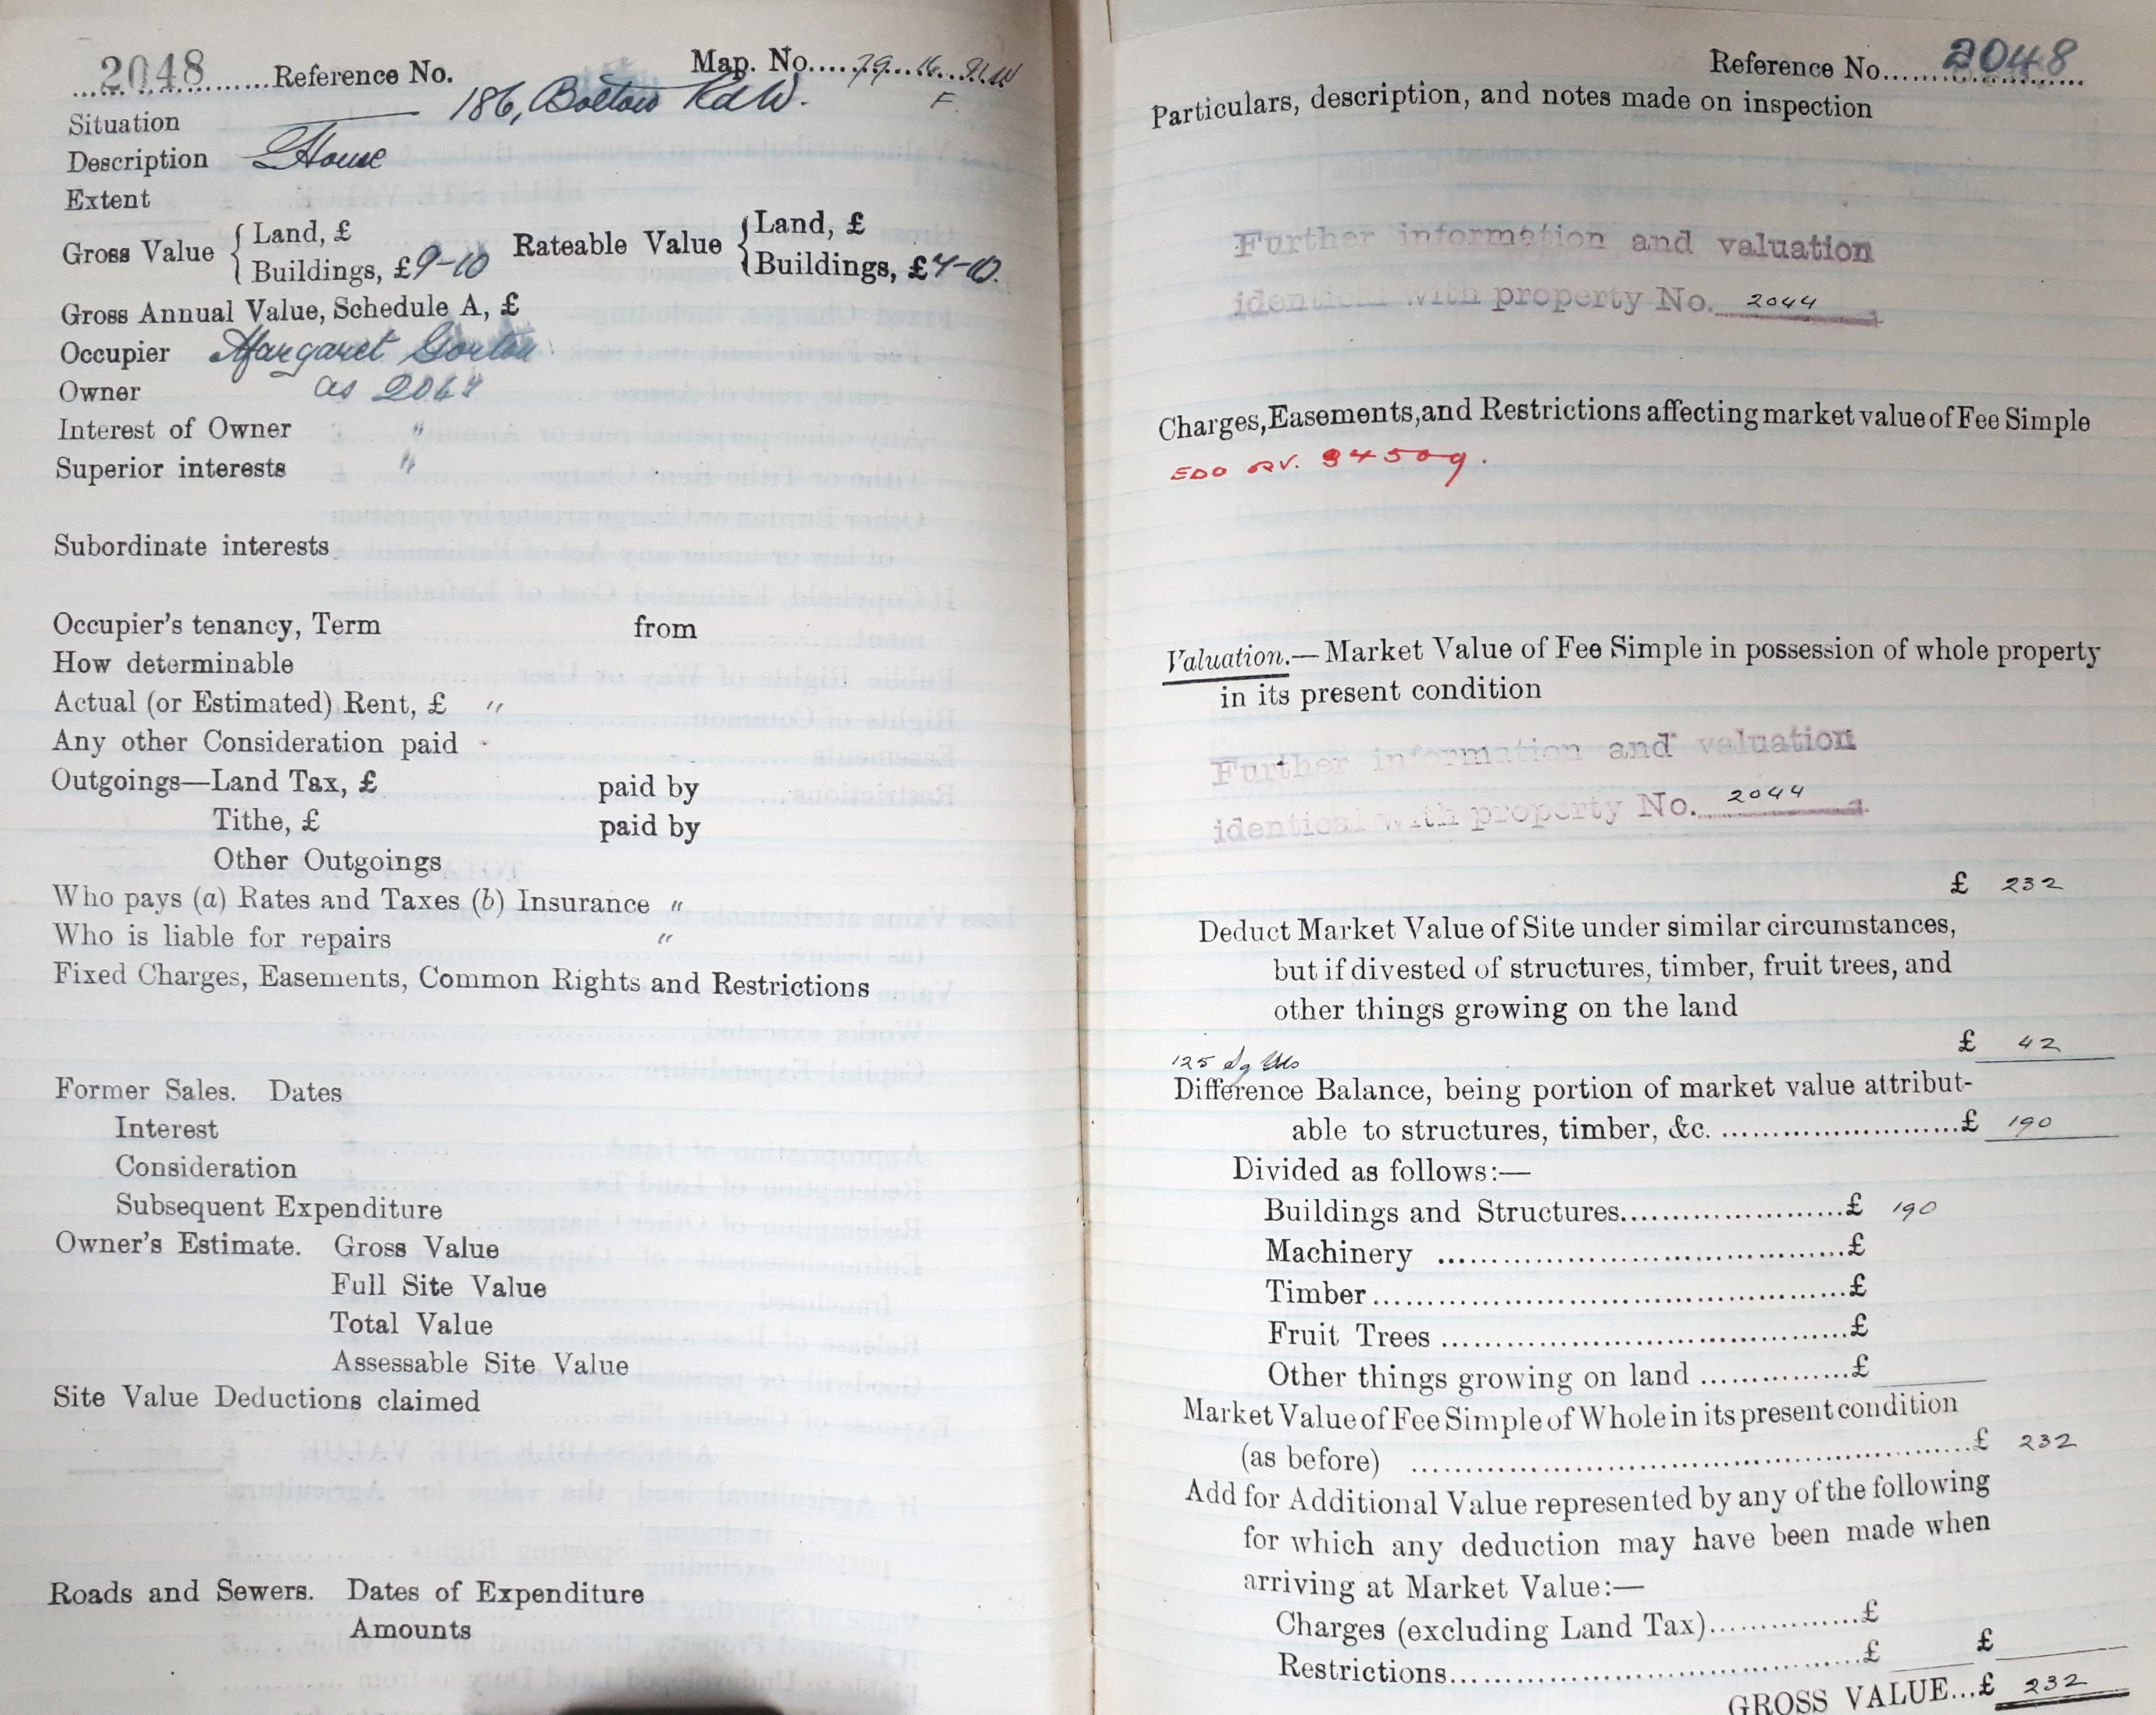 2048 Reference No. Map. No. 79. 16.
186, Bolton Rd W. F.
Situation
Description House
Extent
Gross Value { Land, £ Rateable Value { Land, £
Buildings, £9-10 Buildings, £7-10.
Gross Annual Value, Schedule A, £
Occupier Margaret Gorton
Owner as 2044
Interest of Owner "
Superior interests "
Subordinate interests
Occupier's tenancy, Term from
How determinable
Actual (or Estimated) Rent, £ "
Any other Consideration paid -
Outgoings—Land Tax, £ paid by
Tithe, £ paid by
Other Outgoings
Who pays (a) Rates and Taxes (b) Insurance "
Who is liable for repairs "
Fixed Charges, Easements, Common Rights and Restrictions
Former Sales. Dates
Interest
Consideration
Subsequent Expenditure
Owner's Estimate. Gross Value
Full Site Value
Total Value
Assessable Site Value
Site Value Deductions claimed
Roads and Sewers. Dates of Expenditure
Amounts
Reference No. 2048
Particulars, description, and notes made on inspection
Further information and valuation
identical with property No. 2044
Charges, Easements, and Restrictions affecting market value of Fee Simple
EDO RV. 84509.
Valuation.—Market Value of Fee Simple in possession of whole property
in its present condition
Further information and valuation
identical with property No. 2044
£ 232
Deduct Market Value of Site under similar circumstances,
but if divested of structures, timber, fruit trees, and
other things growing on the land
£ 42
125 Sq Yds
Difference Balance, being portion of market value attribut-
able to structures, timber, &c. £ 190
Divided as follows:—
Buildings and Structures £ 190
Machinery £
Timber £
Fruit Trees £
Other things growing on land £
Market Value of Fee Simple of Whole in its present condition
(as before) £ 232
Add for Additional Value represented by any of the following
for which any deduction may have been made when
arriving at Market Value:—
Charges (excluding Land Tax) £
Restrictions £ £
GROSS VALUE...£ 232